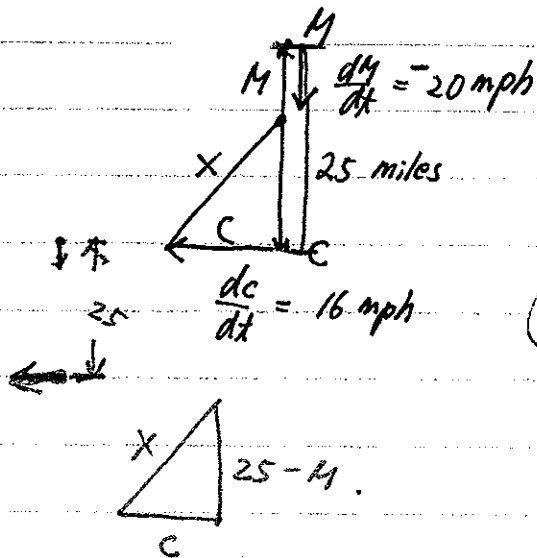 M
M dM/dt = -20 mph
X 25 miles
C C
25 dc/dt = 16 mph
X 25 - M.
C